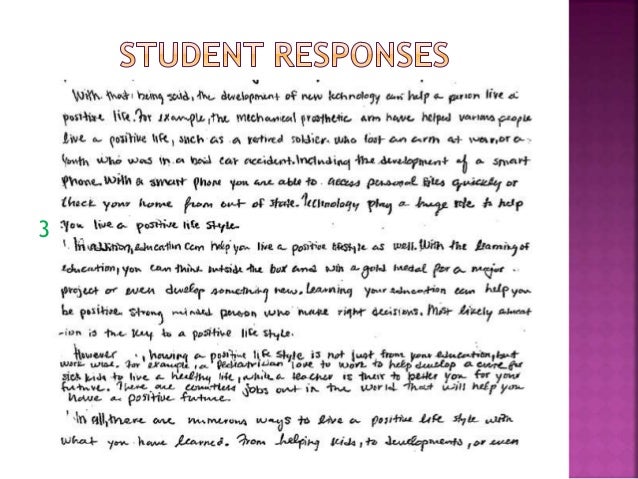 STUDENT RESPONSES
With that being said, the development of new technology can help a person live a
positive life. For example, the mechanical prosthetic arm have helped various people
live a positive life, such as a retired soldier who lost an arm at war, or a
youth who was in a bad car accident. Including the development of a smart
phone. With a smart phone you are able to access personal files quickly or
check your home from out of state. Technology play a huge role to help
3 you live a positive life style.
In addition, education can help you live a positive lifestyle as well. With the learning of
education, you can think outside the box and win a gold medal for a major
project or even develop something new. Learning your education can help you
be positive strong minded person who make right decisions. Most likely educat
-ion is the key to a positive life style.
However, having a positive life style is not just from your education, but
work wise. For example, a Pediatrician love to work to help develop a cure for
sick kids to live a healthy life, while a teacher is their to better you for your
future. There are countless jobs out in the world that will help you
have a positive future.
In all, there are numerous ways to live a positive life style with
what you have learned. From helping kids, to developments, or even